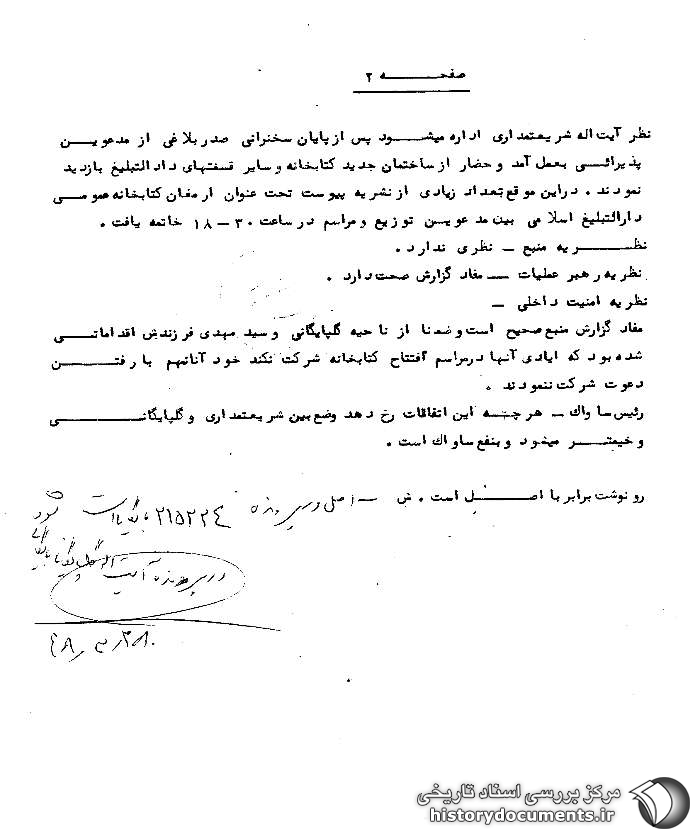 صفحه ۲
نظر آیت اله شریعتمداری اداره میشود پس از پایان سخنرانی صدر بلاغی از مدعوین
پذیرائی بعمل آمد و حضار از ساختمان جدید کتابخانه و سایر قسمتهای دادالتبلیغ بازدید
نمودند . دراین موقع تعداد زیادی از نشریه پیوست تحت عنوان ارمغان کتابخانه عمومی
دارالتبلیغ اسلامی بین مدعوین توزیع و مراسم در ساعت ۳۰-۱۸ خاتمه یافت .
نظریه منبع - نظری ندارد .
نظریه رهبر عملیات - مفاد گزارش صحت دارد .
نظریه امنیت داخلی -
مفاد گزارش منبع صحیح است وضمنا از ناحیه گلپایگانی و سید مهدی فرزندش اقداماتی
شده بود که ایادی آنها درمراسم افتتاح کتابخانه شرکت نکند خود آنانهم با رفتن
دعوت شرکت ننمودند .
رئیس ساواک - هر چه این اتفاقات رخ دهد وضع بین شریعتمداری و گلپایگانی
وخیمتر میخود و بنفع ساواک است .
رونوشت برابر با اصل است . ض - اصل در پرونده ۲۱۵۲۲۴ بایگانی است
در پرونده آیت
۴۸٫۳٫۲۸
مرکز بررسی اسناد تاریخی
historydocuments.ir